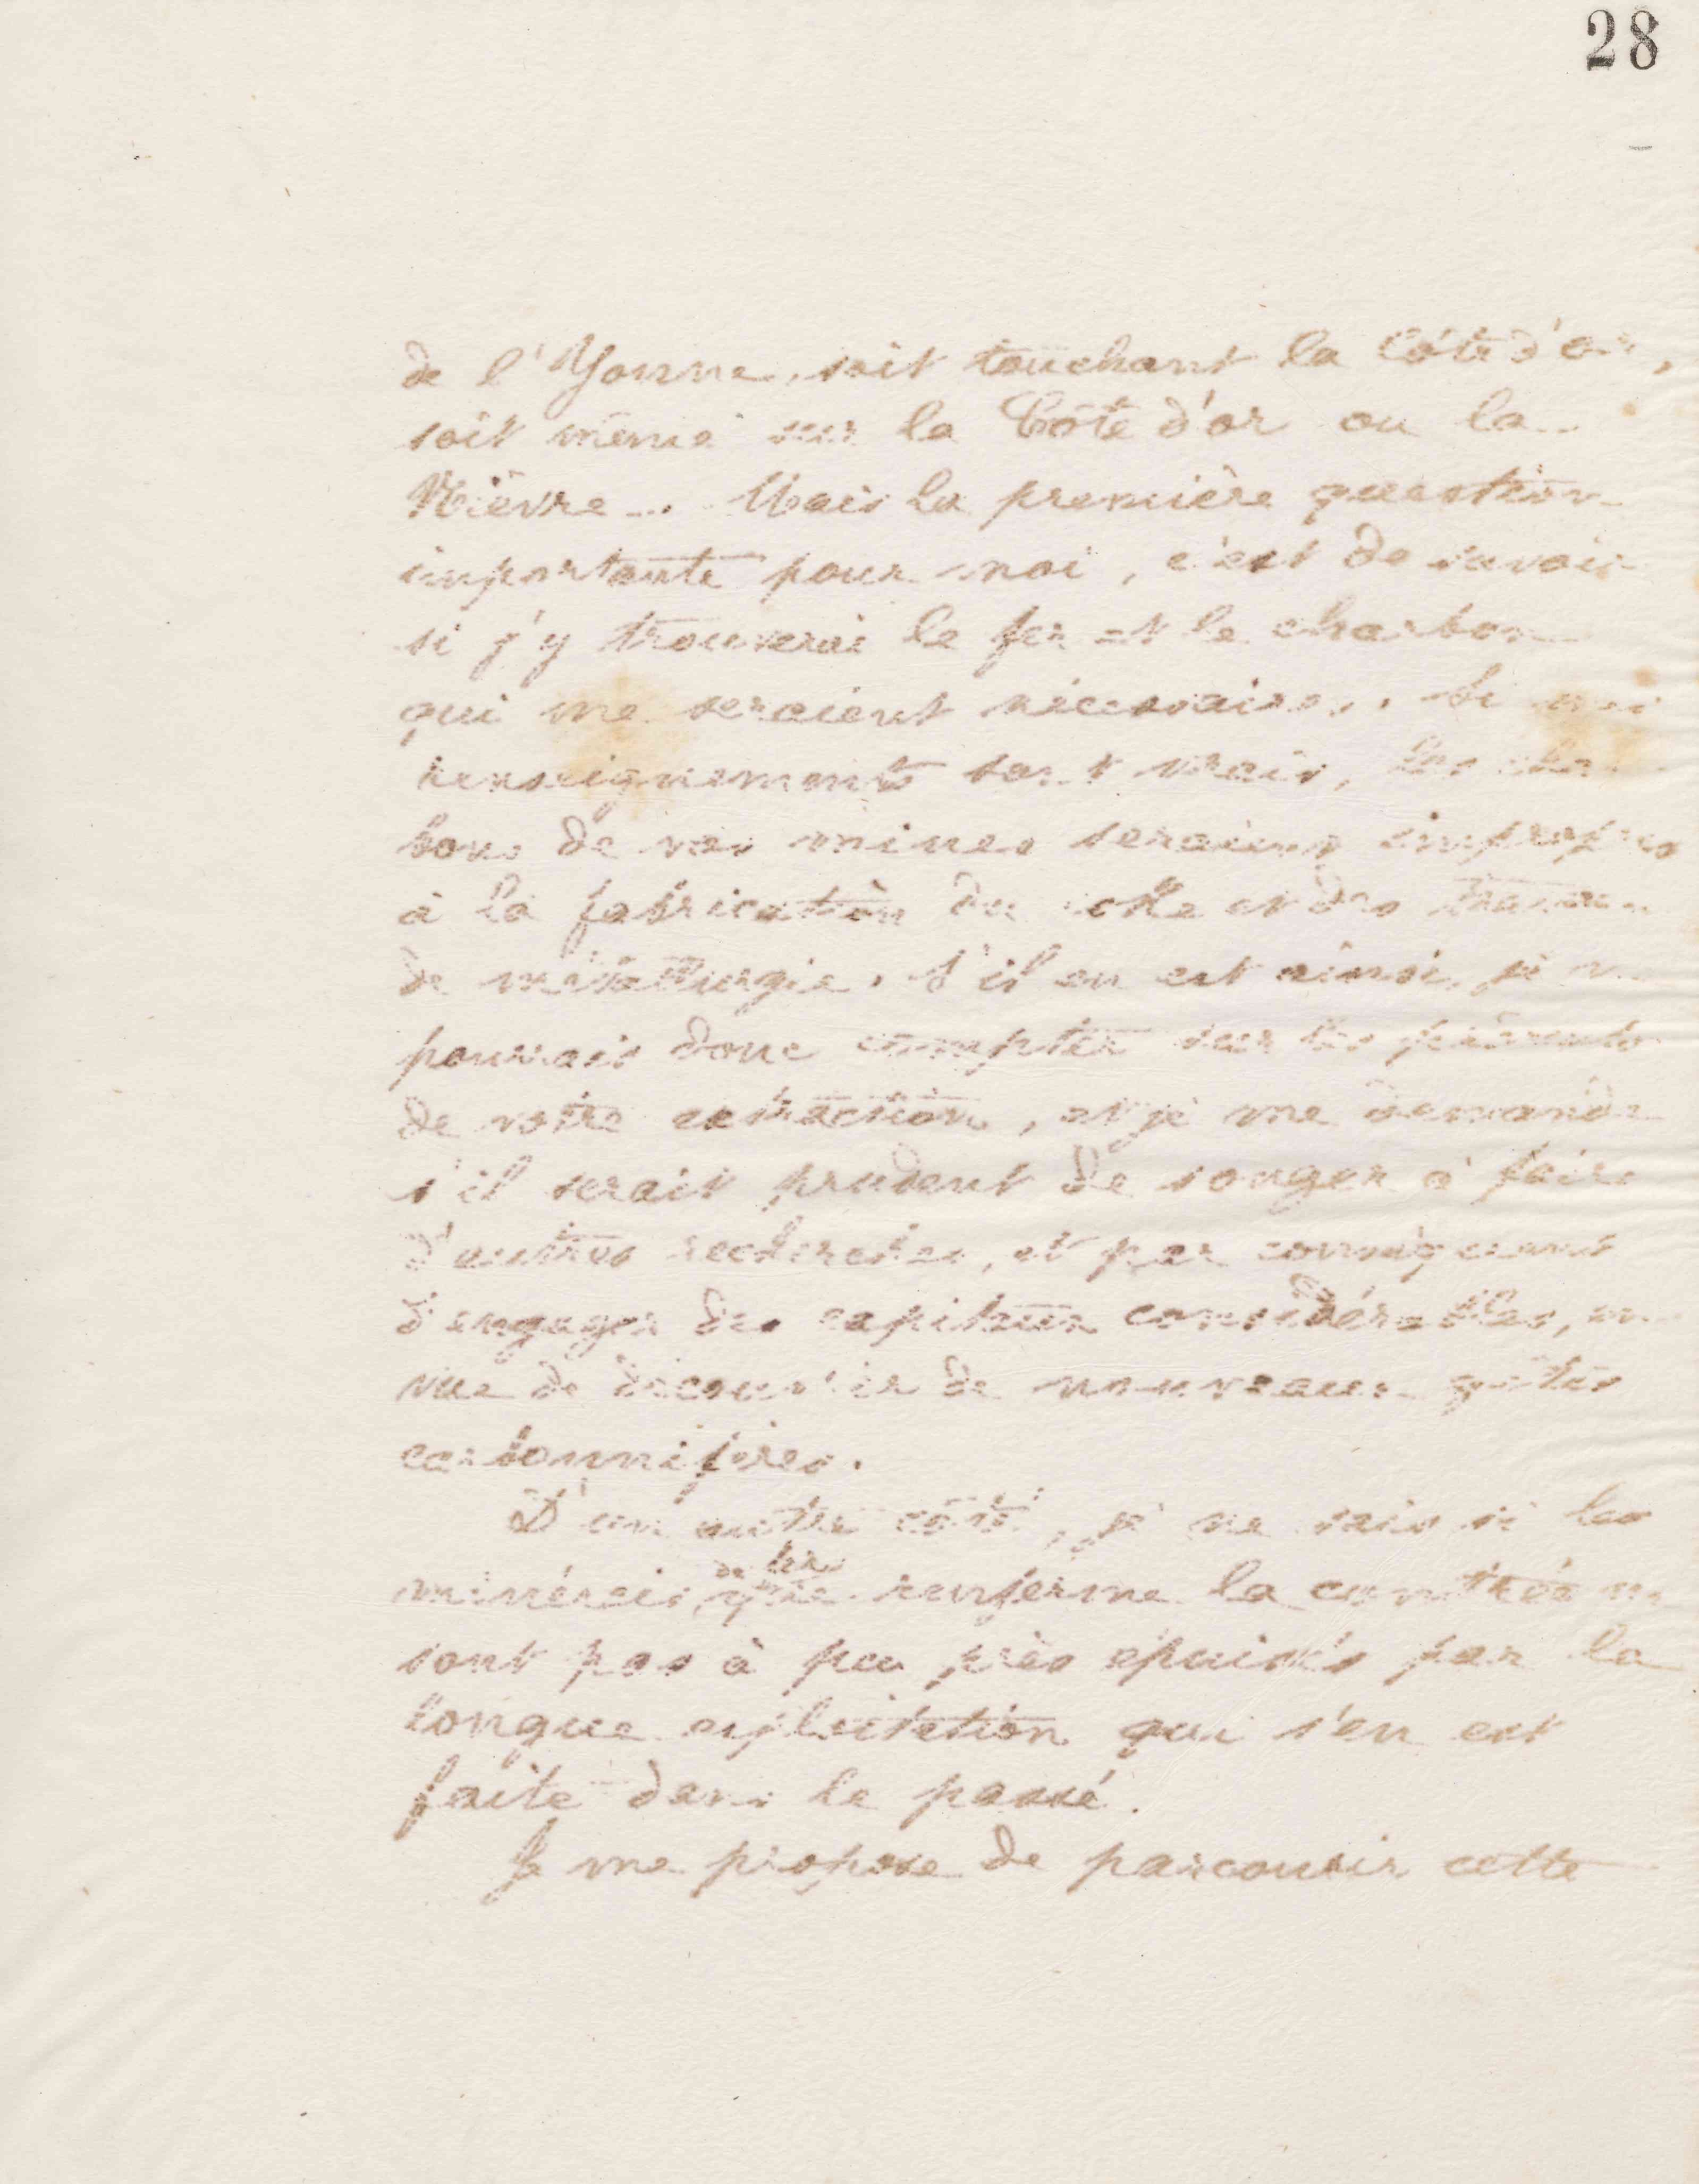 28
de l'Yonne, soit touchant la Côte d'or,
soit même sur la Côte d'or ou la
Nièvre... Mais la première question
importante pour moi, c'est de savoir
si j'y trouverai le fer et le charbon
qui me seraient nécessaires. Si mes
renseignements sont vrais, les char
bons de vos mines seraient impropres
à la fabrication du coke et des travaux
de métallurgie. S'il en est ainsi, je ne
pourrais donc compter sur les
de votre extraction, et je me demande
s'il serait prudent de songer à faire
d'autres recherches, et par conséquent
d'engager des capitaux considérables, en
vue de découvrir de nouveaux gîtes
carbonnifères.
D'un autre côté, je ne sais si les
minérais de fer que renferme la contrée ne
sont pas à peu près épuisés par la
longue exploitation qui s'en est
faite dans le passé.
Je me propose de parcourir cette